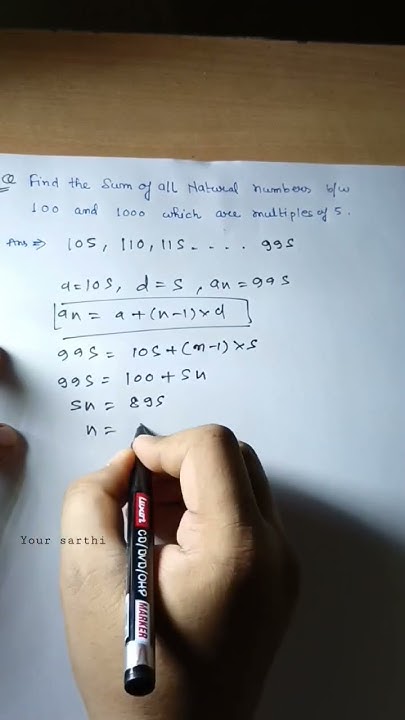 Q Find the Sum of all Natural numbers b/w
100 and 1000 which are multiples of 5.
Ans ⇒ 105, 110, 115 - . . . . 995
a = 105, d = 5, an = 995
an = a + (n-1) × d
995 = 105 + (n-1) × 5
995 = 100 + 5n
5n = 895
n =
Your sarthi
Luxor CD/DVD/OHP MARKER